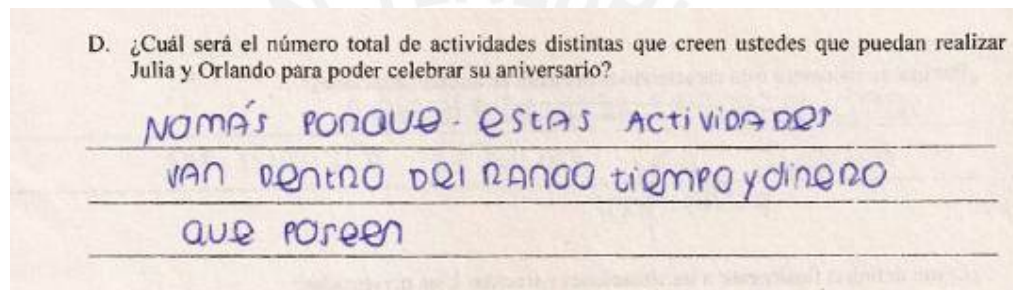 D. ¿Cuál será el número total de actividades distintas que creen ustedes que puedan realizar
Julia y Orlando para poder celebrar su aniversario?
NOMÁS PORQUE. ESTAS ACTIVIDADES
VAN DENTRO DEL RANGO tiEMPO y dinERO
QUE POSEEN